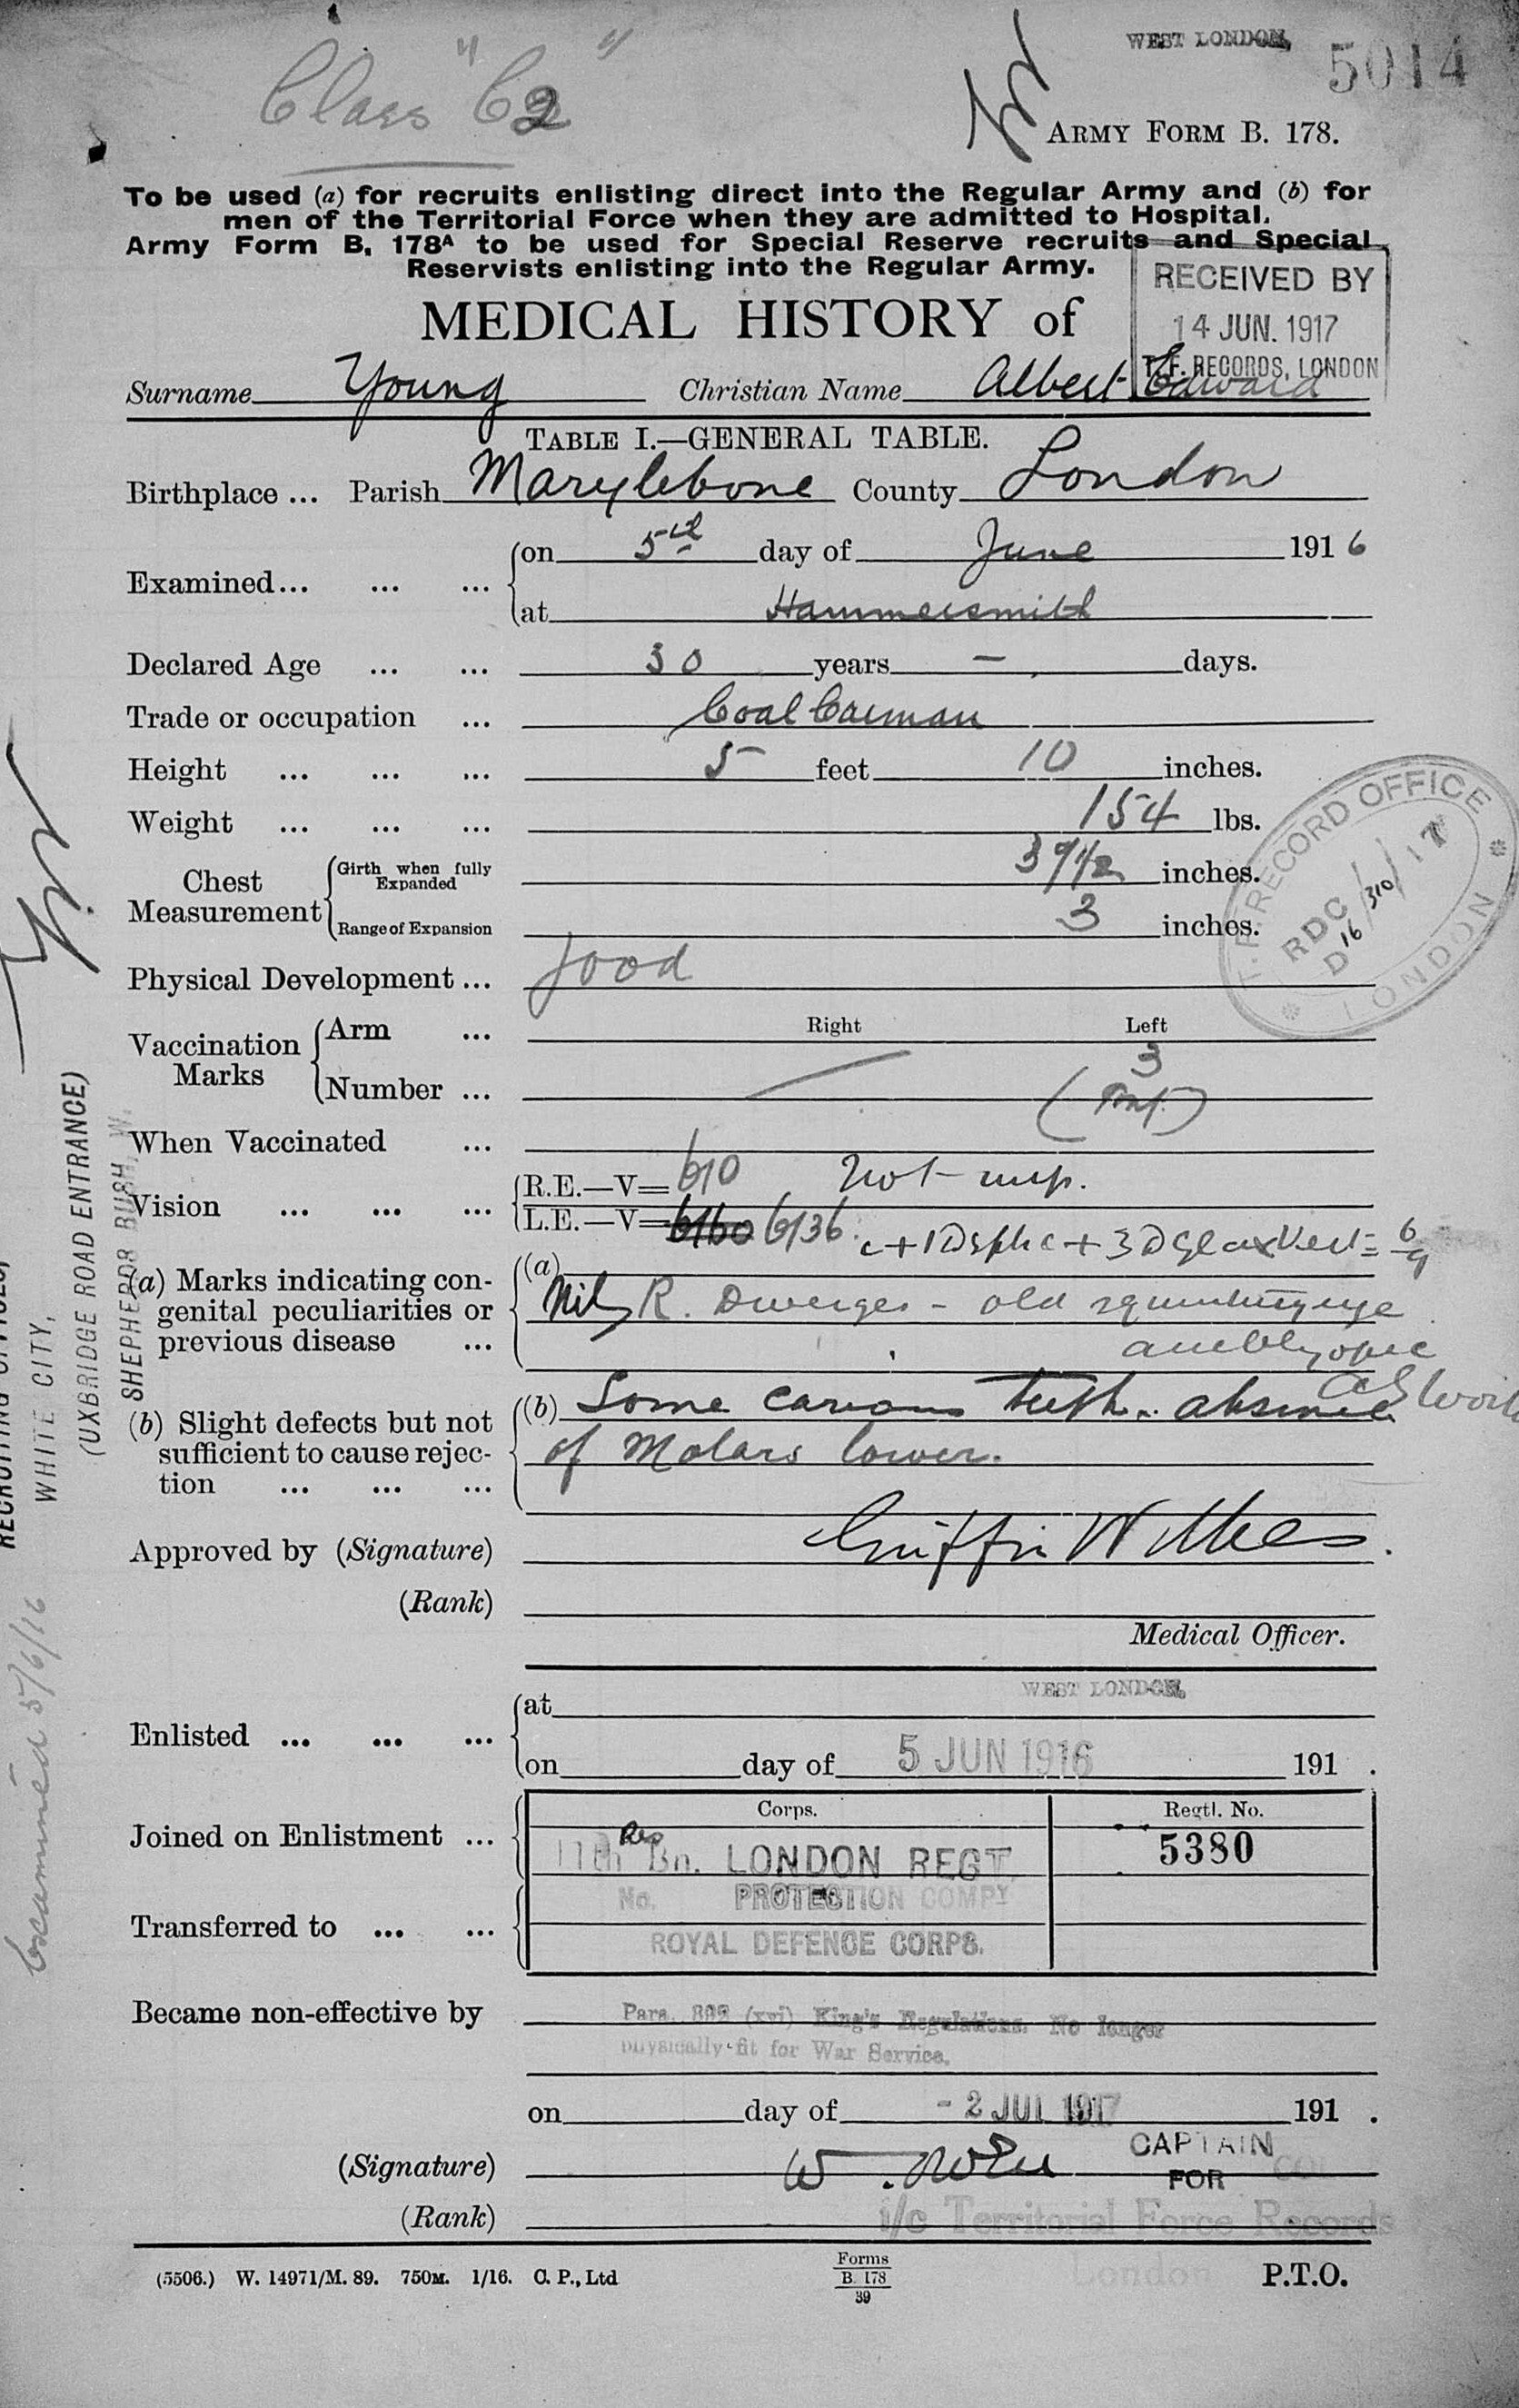 WEST LONDON,
5014
Class "C2"
ARMY FORM B. 178.
To be used (a) for recruits enlisting direct into the Regular Army and (b) for
men of the Territorial Force when they are admitted to Hospital.
Army Form B. 178A to be used for Special Reserve recruits and Special
Reservists enlisting into the Regular Army.
RECEIVED BY
14 JUN. 1917
T.F. RECORDS, LONDON
MEDICAL HISTORY of
Surname Young Christian Name Albert Edward
TABLE I.—GENERAL TABLE.
Birthplace ... Parish Marylebone County London
Examined ... ... ... on 5th day of June 1916
at Hammersmith
Declared Age ... ... 30 years — days.
Trade or occupation ... Coal Carman
Height ... ... ... 5 feet 10 inches.
Weight ... ... ... 154 lbs.
Chest Measurement Girth when fully Expanded 39 1/2 inches.
Range of Expansion 3 inches.
T.F. RECORD OFFICE
RDC / 310 / 17
D 16
LONDON
Physical Development ... good
Vaccination Marks Arm ... Right Left
Number ... 3
(Inf.)
When Vaccinated ...
Vision ... ... ... R.E.—V= 6/0 Not imp.
L.E.—V= 6/60 6/36 c + 1D sph c + 3D cyl ax Vert = 6/9
(a) Marks indicating con-
genital peculiarities or
previous disease ...
(a) Nil R. Diverges - old squinting eye
amblyopic
(b) Slight defects but not
sufficient to cause rejec-
tion ... ... ...
(b) Some carious teeth absence
of Molars lower.
Approved by (Signature)
(Rank)
Medical Officer.
Enlisted ... ... ... at WEST LONDON,
on day of 5 JUN 1916 191 .
Corps. Regtl. No.
Joined on Enlistment ... 11th Res Bn. LONDON REGT. 5380
Transferred to ... ... No. PROTECTION COMPY
ROYAL DEFENCE CORPS.
Became non-effective by Para. 392 (xvi) King's Regulations. No longer
physically fit for War Service.
on day of - 2 JUL 1917 191 .
(Signature) CAPTAIN
FOR COL
(Rank) i/c Territorial Force Records
London
(5506.) W. 14971/M. 89. 750M. 1/16. C. P., Ltd
Forms
B. 178
39
P.T.O.
WHITE CITY,
(UXBRIDGE ROAD ENTRANCE)
SHEPHERDS BUSH, W.
Examined 5/6/16